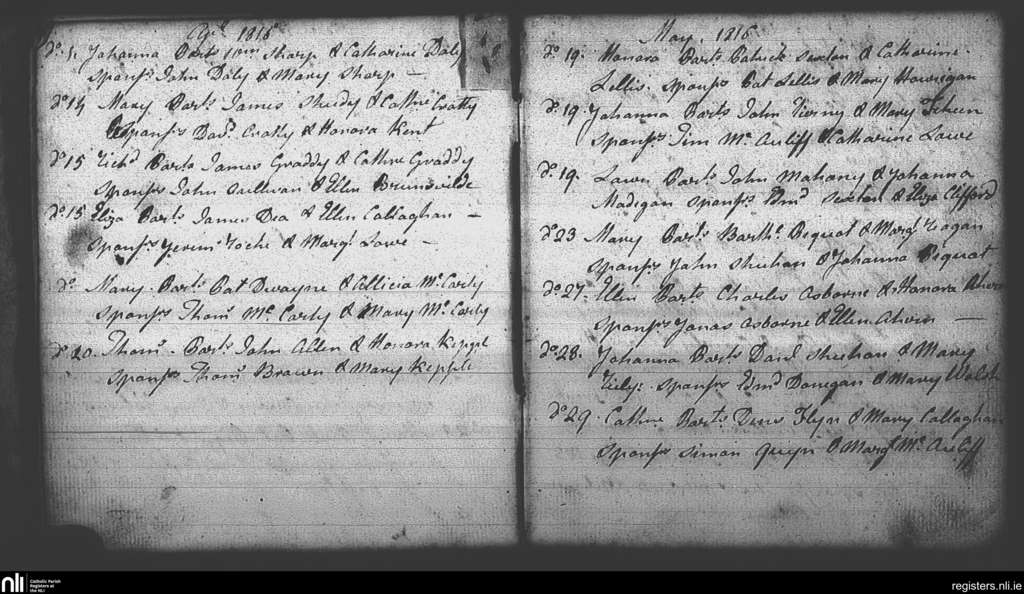 Apl 1816
do. 1. Johanna Parts Wm Sharp & Catharine Daly
Sponsrs John Daly & Mary Sharp —
do 14 Mary Parts James Sheedy & Cathne Crotty
Sponsrs Dad. Crotty & Honora Kent
do 15 Richd Parts James Graddy & Cathne Graddy
Sponsrs John Sullivan & Ellen
do 15 Eliza Parts James Dea & Ellen Callaghan —
Sponsrs Roche & Margt Lowe —
do. Mary Parts Pat Dwayne & Allicia Mc. Carty
Sponsrs Thoms Mc. Carty & Mary Mc. Carty
do 20. Thoms. Parts John Allen & Honora Kepple
Sponsrs Thoms Brown & Mary Kepple
May. 1816
do. 19. Honora Parts Patrick Sexton & Catharine
Lellis. Sponsrs Pat Lellis & Mary Hourigan
do. 19. Johanna Parts John & Mary
Sponsrs Tim Mc. Auliff & Catharine Lowe
do. 19. Parts John Mahony & Johanna
Madigan Sponsrs Edmd Sexton & Eliza Clifford
do 23 Mary Parts Barthw. Biguat & Margt
Sponsrs John Sheehan & Johanna Biguat
do 27. Ellen Parts Charles Osborne & Honora
Sponsrs Jonas Osborne & Ellen —
do. 28. Johanna Parts Danl Sheehan & Mary
Sponsrs Edmd Donegan & Mary Walsh
do 29. Cathne Parts Denis Flyn & Mary Callaghan
Sponsrs Simon Quyn & Margt Mc. Auliff
nli
Catholic Parish
Registers at
the NLI
registers.nli.ie